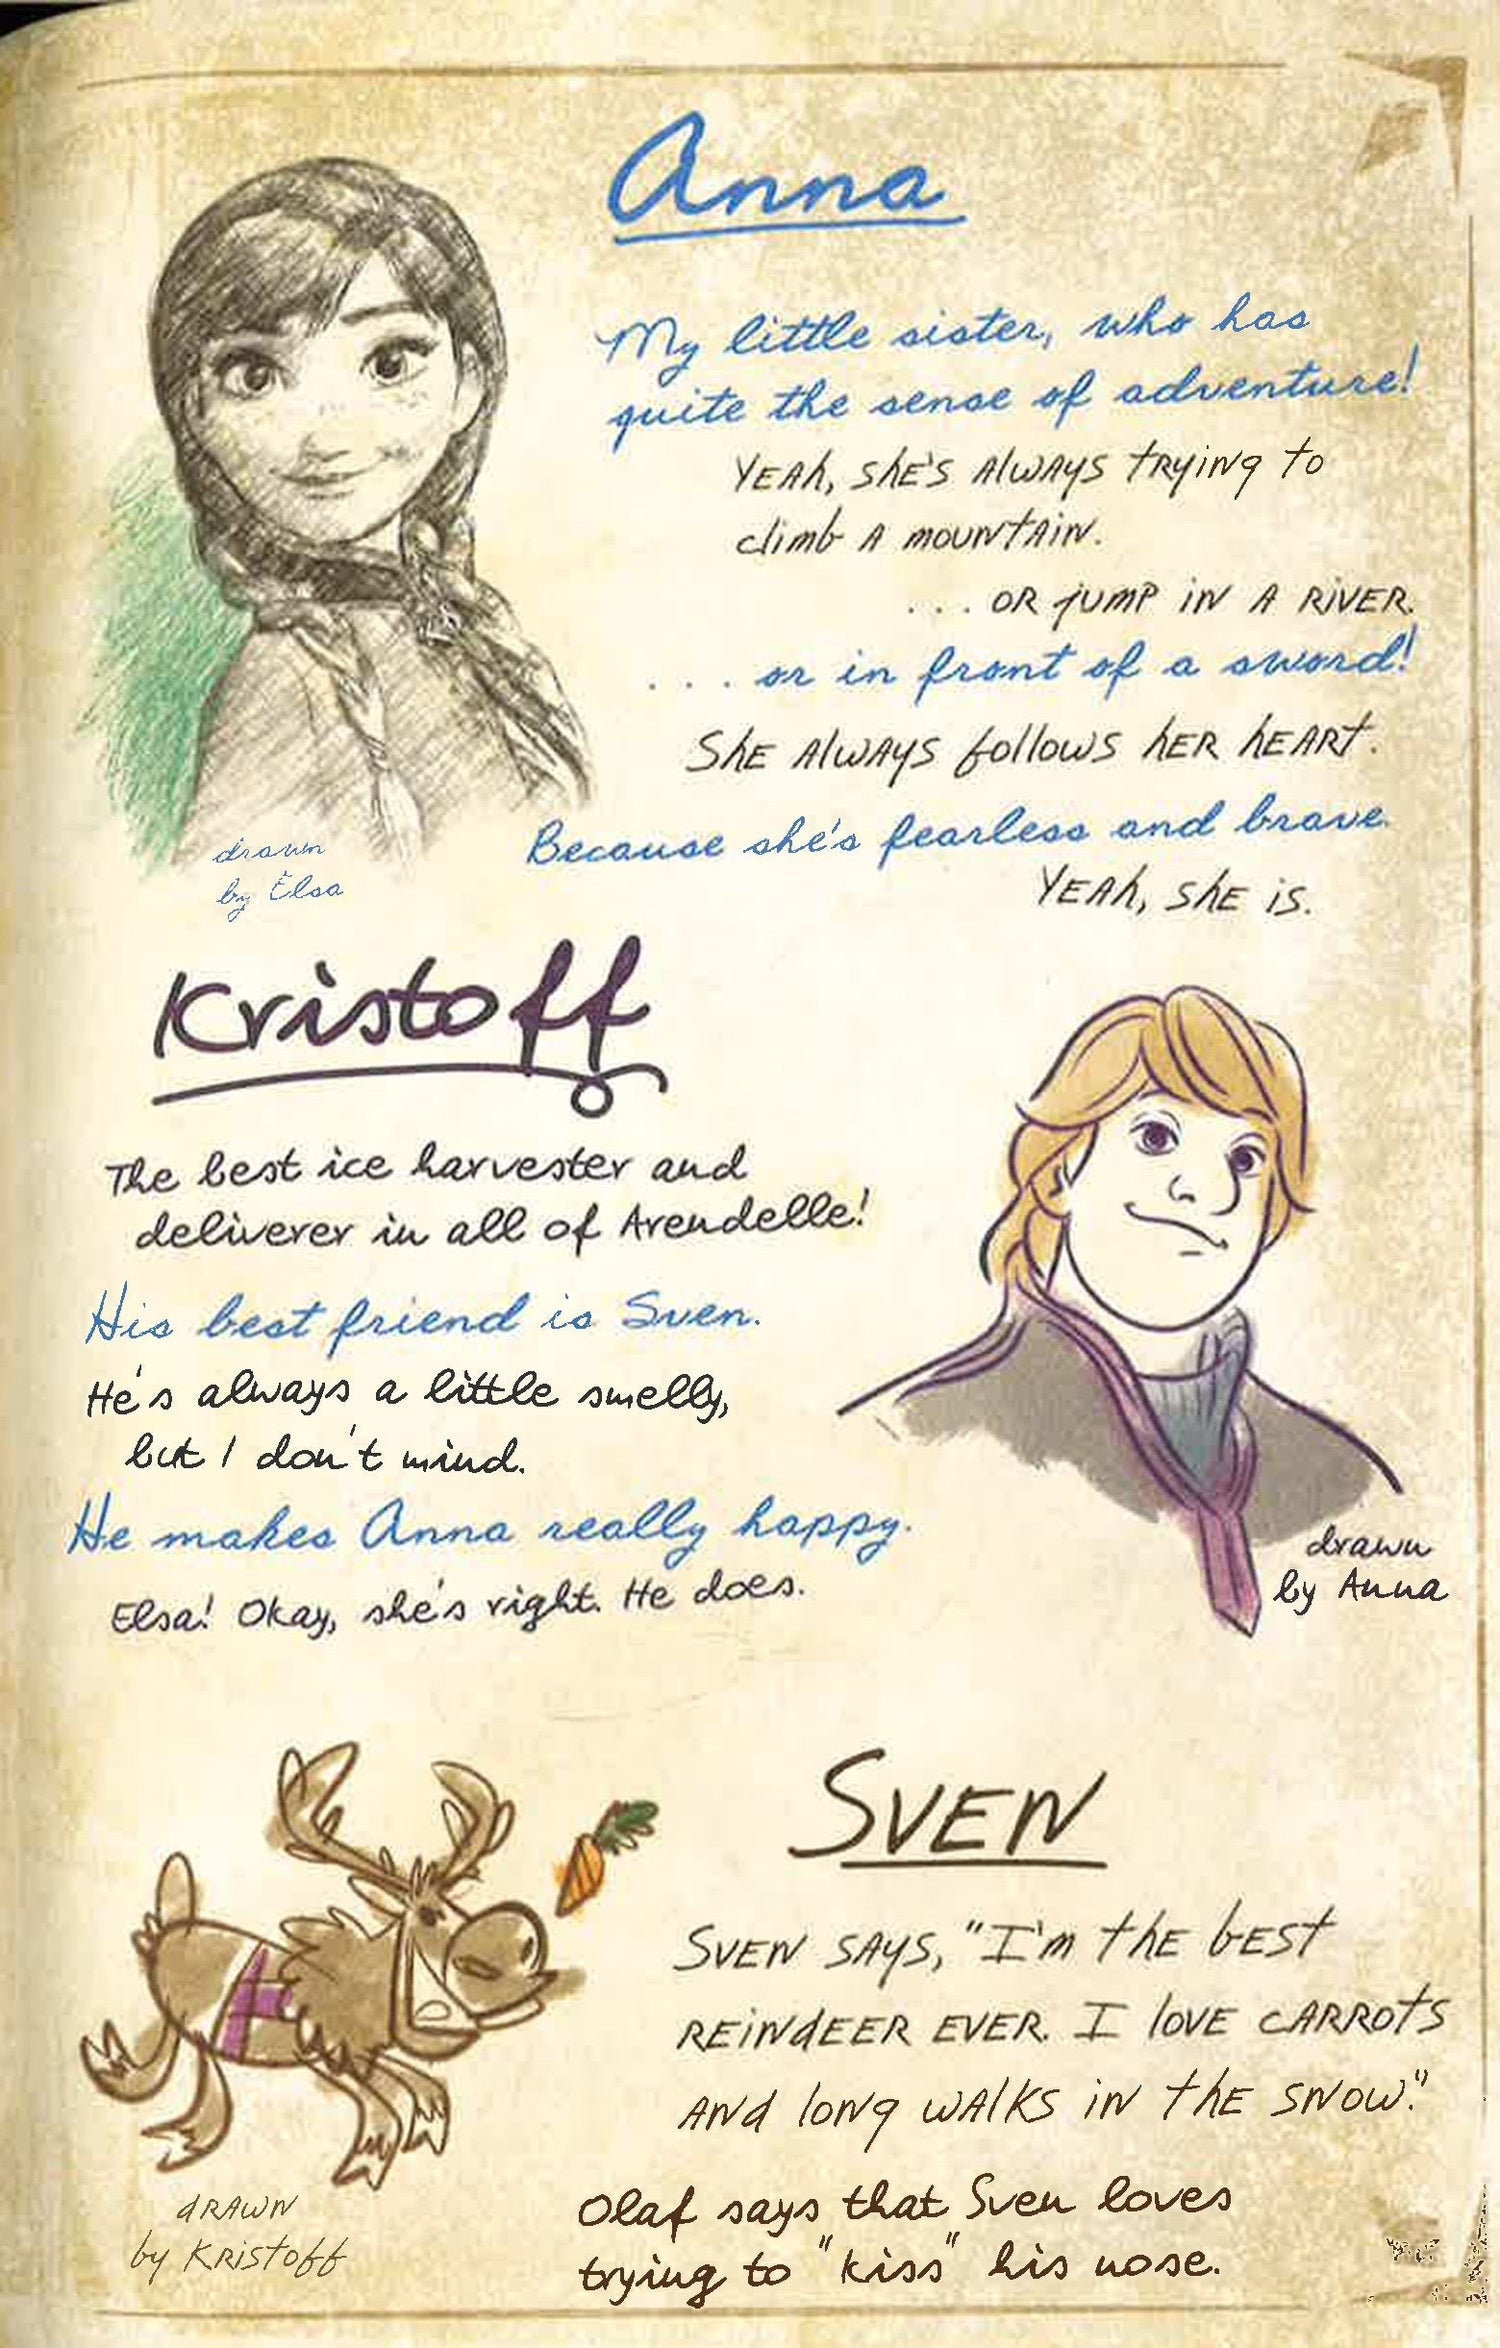 Anna
My little sister, who has
quite the sense of adventure!
Yeah, she's always trying to
climb a mountain.
...or jump in a river.
...or in front of a sword!
She always follows her heart.
Because she's fearless and brave.
Yeah, she is.
drawn
by Elsa
Kristoff
The best ice harvester and
deliverer in all of Arendelle!
His best friend is Sven.
He's always a little smelly,
but I don't mind.
He makes Anna really happy.
Elsa! Okay, she's right. He does.
drawn
by Anna
Sven
Sven says, "I'm the best
reindeer ever. I love carrots
and long walks in the snow."
Olaf says that Sven loves
trying to "kiss" his nose.
drawn
by Kristoff